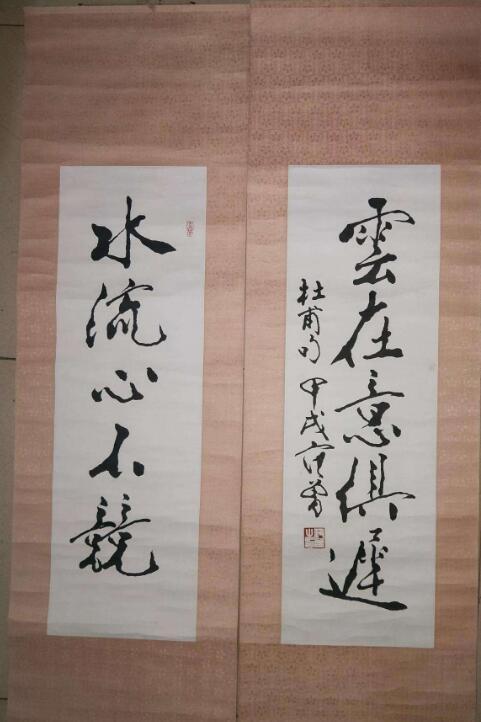 水流心不競
雲在意俱遲
杜甫句 甲戌范曾